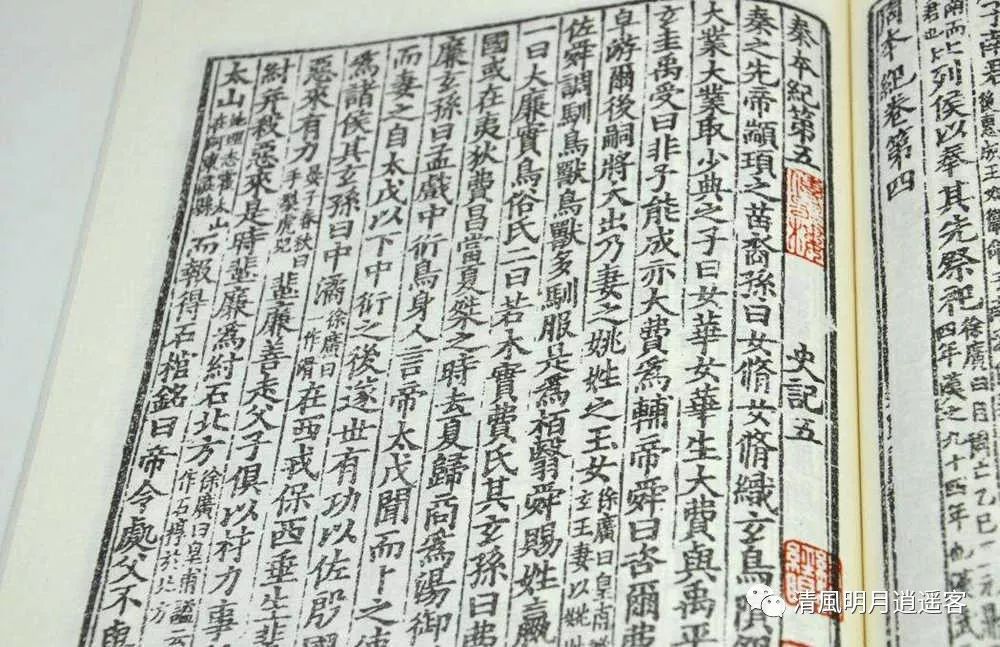 子南君
比列侯以奉其先祭祀 徐廣曰自周亡乙巳至元鼎
四年漢之九十四年也漢武
周本紀卷第四
秦本紀第五 史記五
秦之先帝顓頊之苗裔孫曰女脩女脩織玄鳥隕卵
大業大業取少典之子曰女華女華生大費與禹平
玄圭禹受曰非子能成亦大費爲輔帝舜曰咨爾費
皁游爾後嗣將大出乃妻之姚姓之玉女 徐廣曰皇甫
玄玉妻以姚姓
佐舜調馴鳥獸鳥獸多馴服是爲柏翳舜賜姓嬴
一曰大廉實鳥俗氏二曰若木實費氏其玄孫曰費
國或在夷狄費昌當夏桀之時去夏歸商爲湯御
廉玄孫曰孟戲中衍鳥身人言帝太戊聞而卜之使
而妻之自太戊以下中衍之後遂世有功以佐殷國
爲諸侯其玄孫曰中潏 徐廣曰
一作滑 在西戎保西垂生蜚
惡來有力 晏子春秋曰
手裂虎兕 蜚廉善走父子俱以材力事
紂并殺惡來是時蜚廉爲紂石北方 徐廣曰皇甫謐云
作石椁於北方
太山 地理志霍太山
在河東彘縣 而報得石棺銘曰帝令處父不與
清風明月逍遥客